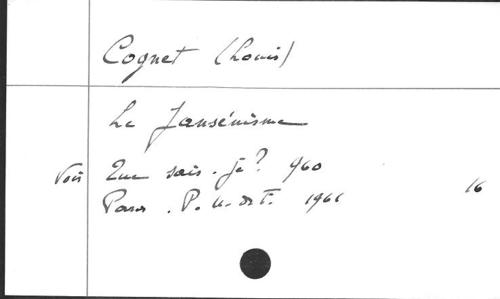 Cognet (Louis)
Le Jansénisme
Voir Que sais-je? 960
Paris. P. U. de F. 1961 16